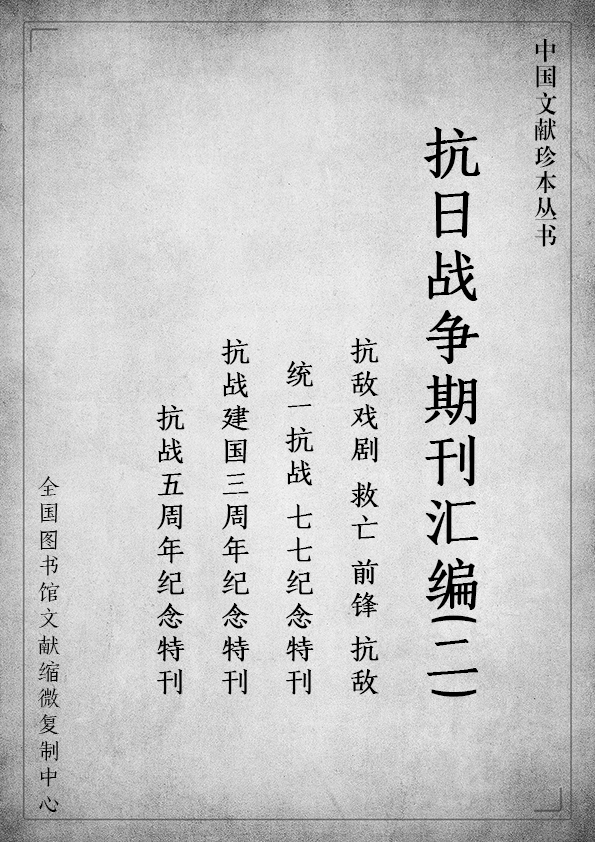 中国文献珍本丛书
抗日战争期刊汇编(二)
抗敌戏剧 救亡 前锋 抗敌
统一抗战 七七纪念特刊
抗战建国三周年纪念特刊
抗战五周年纪念特刊
全国图书馆文献缩微复制中心